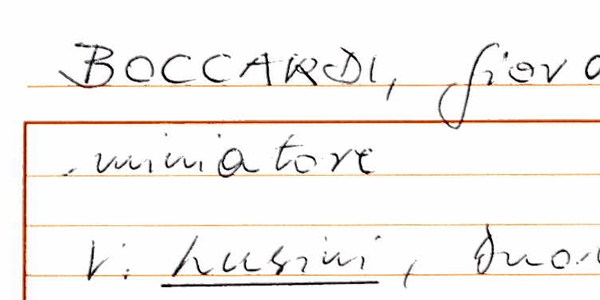 BOCCARDI, Giova
miniatore
V. Lusini, Duo